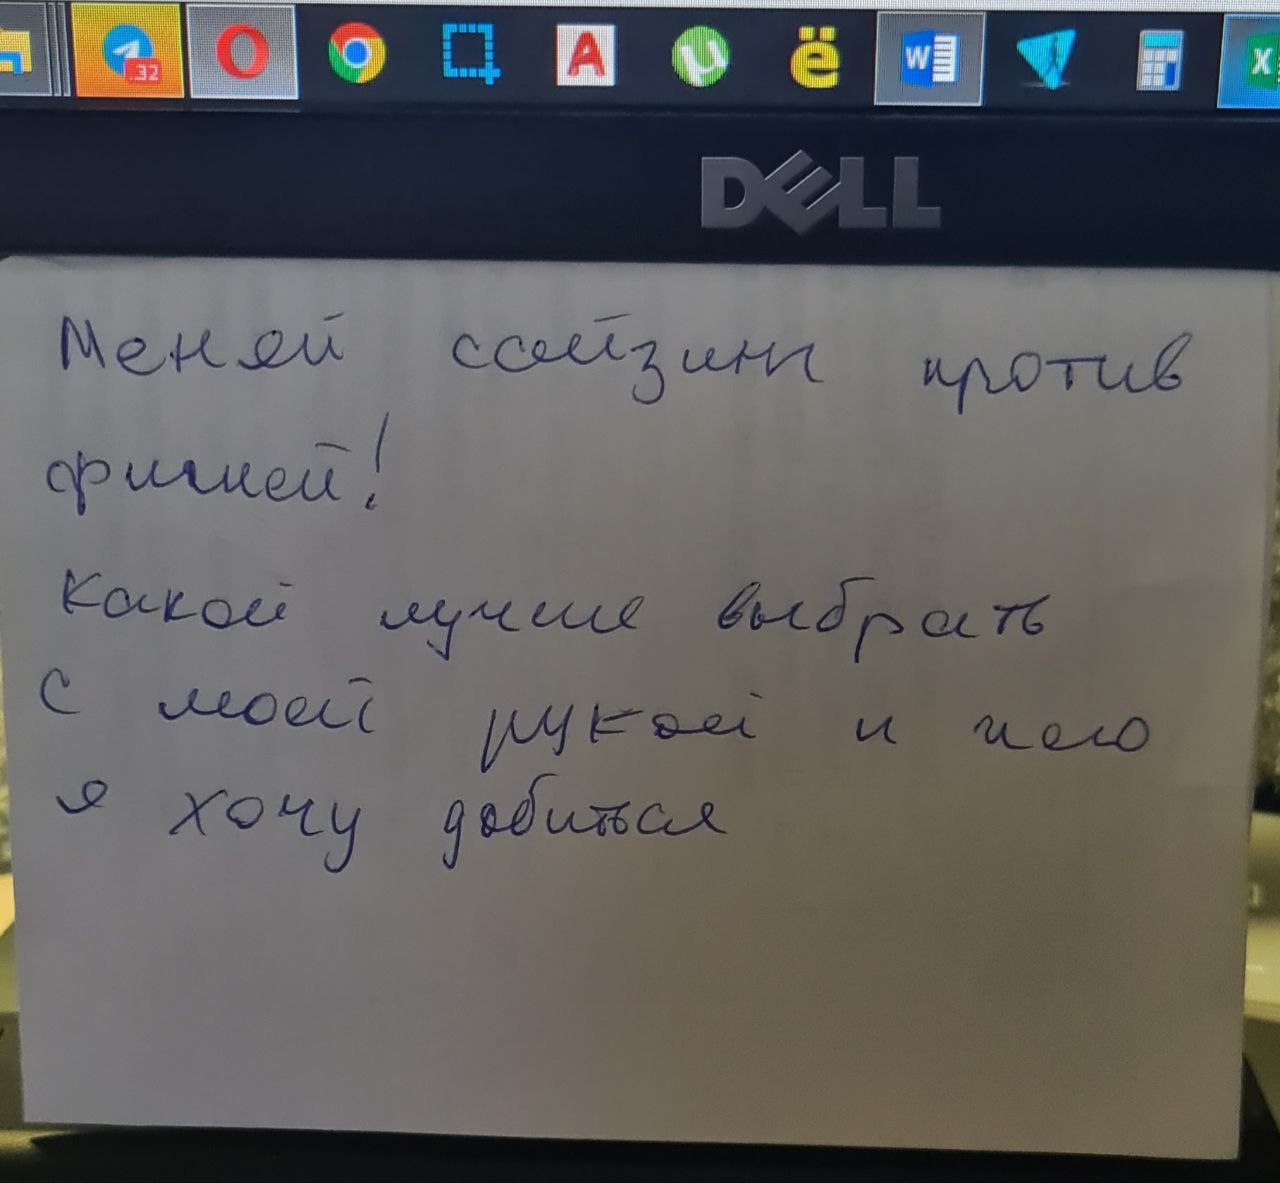 .32
A
µ
ё
W
X
DELL
Меняй сайзинг против
фишей!
Какой лучше выбрать
с моей рукой и чего
я хочу добиться